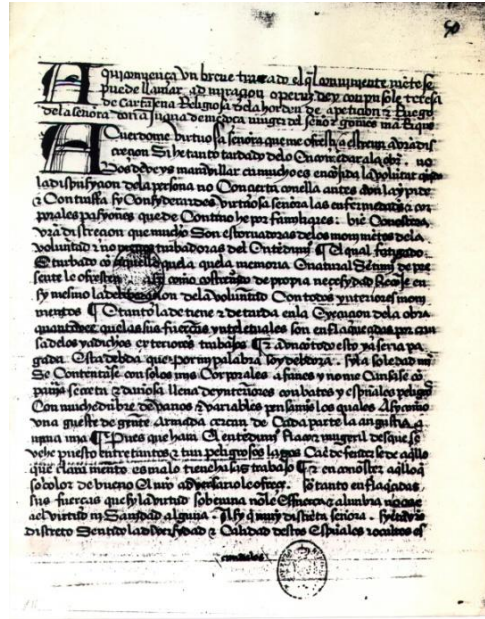 Aqui comiença vn breue tractado el ql conuiniente mẽte se
puede llamar admiraçion operum dey conpuso le teresa
de cartajena Religiosa dela horden de
dela señora doña juana de mẽdoça muger del señor gomes mãrique
Acuerdome virtuosa señora que me ofresçi a escreuir a vra dis
creçion Si he tanto tardado delo Encomẽdar ala obra no
vos deueys marauillar ca mucho es encojida la voluntat quãdo
la dispusyçion dela persona no Conçierta con ella antes avn la ynpide
& Contrasta sy Considerardes virtuosa señora las enfermedades & cor
porales pasyones que de Contino he por familiares bie Conosçera
vra discreçion que mucho Son estoruadoras delos mouimẽtos dela
voluntad & no menos turbadoras del Entẽdimiẽ El qual fatigado
& turbado cõ aquello quela memoria & natural Sẽtimiẽ de pre
sente le ofresçen asy como costreñido de propia neçesydad Recoje en
sy mesmo la deliberaçion dela voluntad Con todos ynteriores moui
mientos & tanto la detiene & detarda enla Execuçion dela obra
quanto vee quelas sus fuerças yntelectuales son enflaqueçidas por cau
sa delos ya dichos exteriores trabajos & a vn cõ todo esto ya seria pa
gada Esta debda que por mi palabra soy debdora sy la soledad mia
Se Contentase con solos mis Corporales afanes y no me Causase cõ
pañia secreta & dañosa llena de ynteriores conbates y espũales peligros
Con muchedũbre de vanos & variables pensamiẽs los quales Asy como
vna hueste de gente Armada çercan de Cada parte la angustiada
anima mia Pues que hara El entẽdimiẽ flaco & mugeril desque se
vehe puesto entre tantos & tan peligrosos lazos Ca de fenderse de aqllo
que clara mente es malo tiene hasaz trabajo & en conosçer aqllo q
so color de bueno El nro adversario le ofreçe so tanto enflaqueçidas
sus fuerças que sy la virtud soberana no le Esfuerça & alunbra no es e
ael virtud ni Sanidad alguna Asy q muy discreta señora sy
discreto Sentido la diuersydad & Calidad destos Espũales & ocultos es